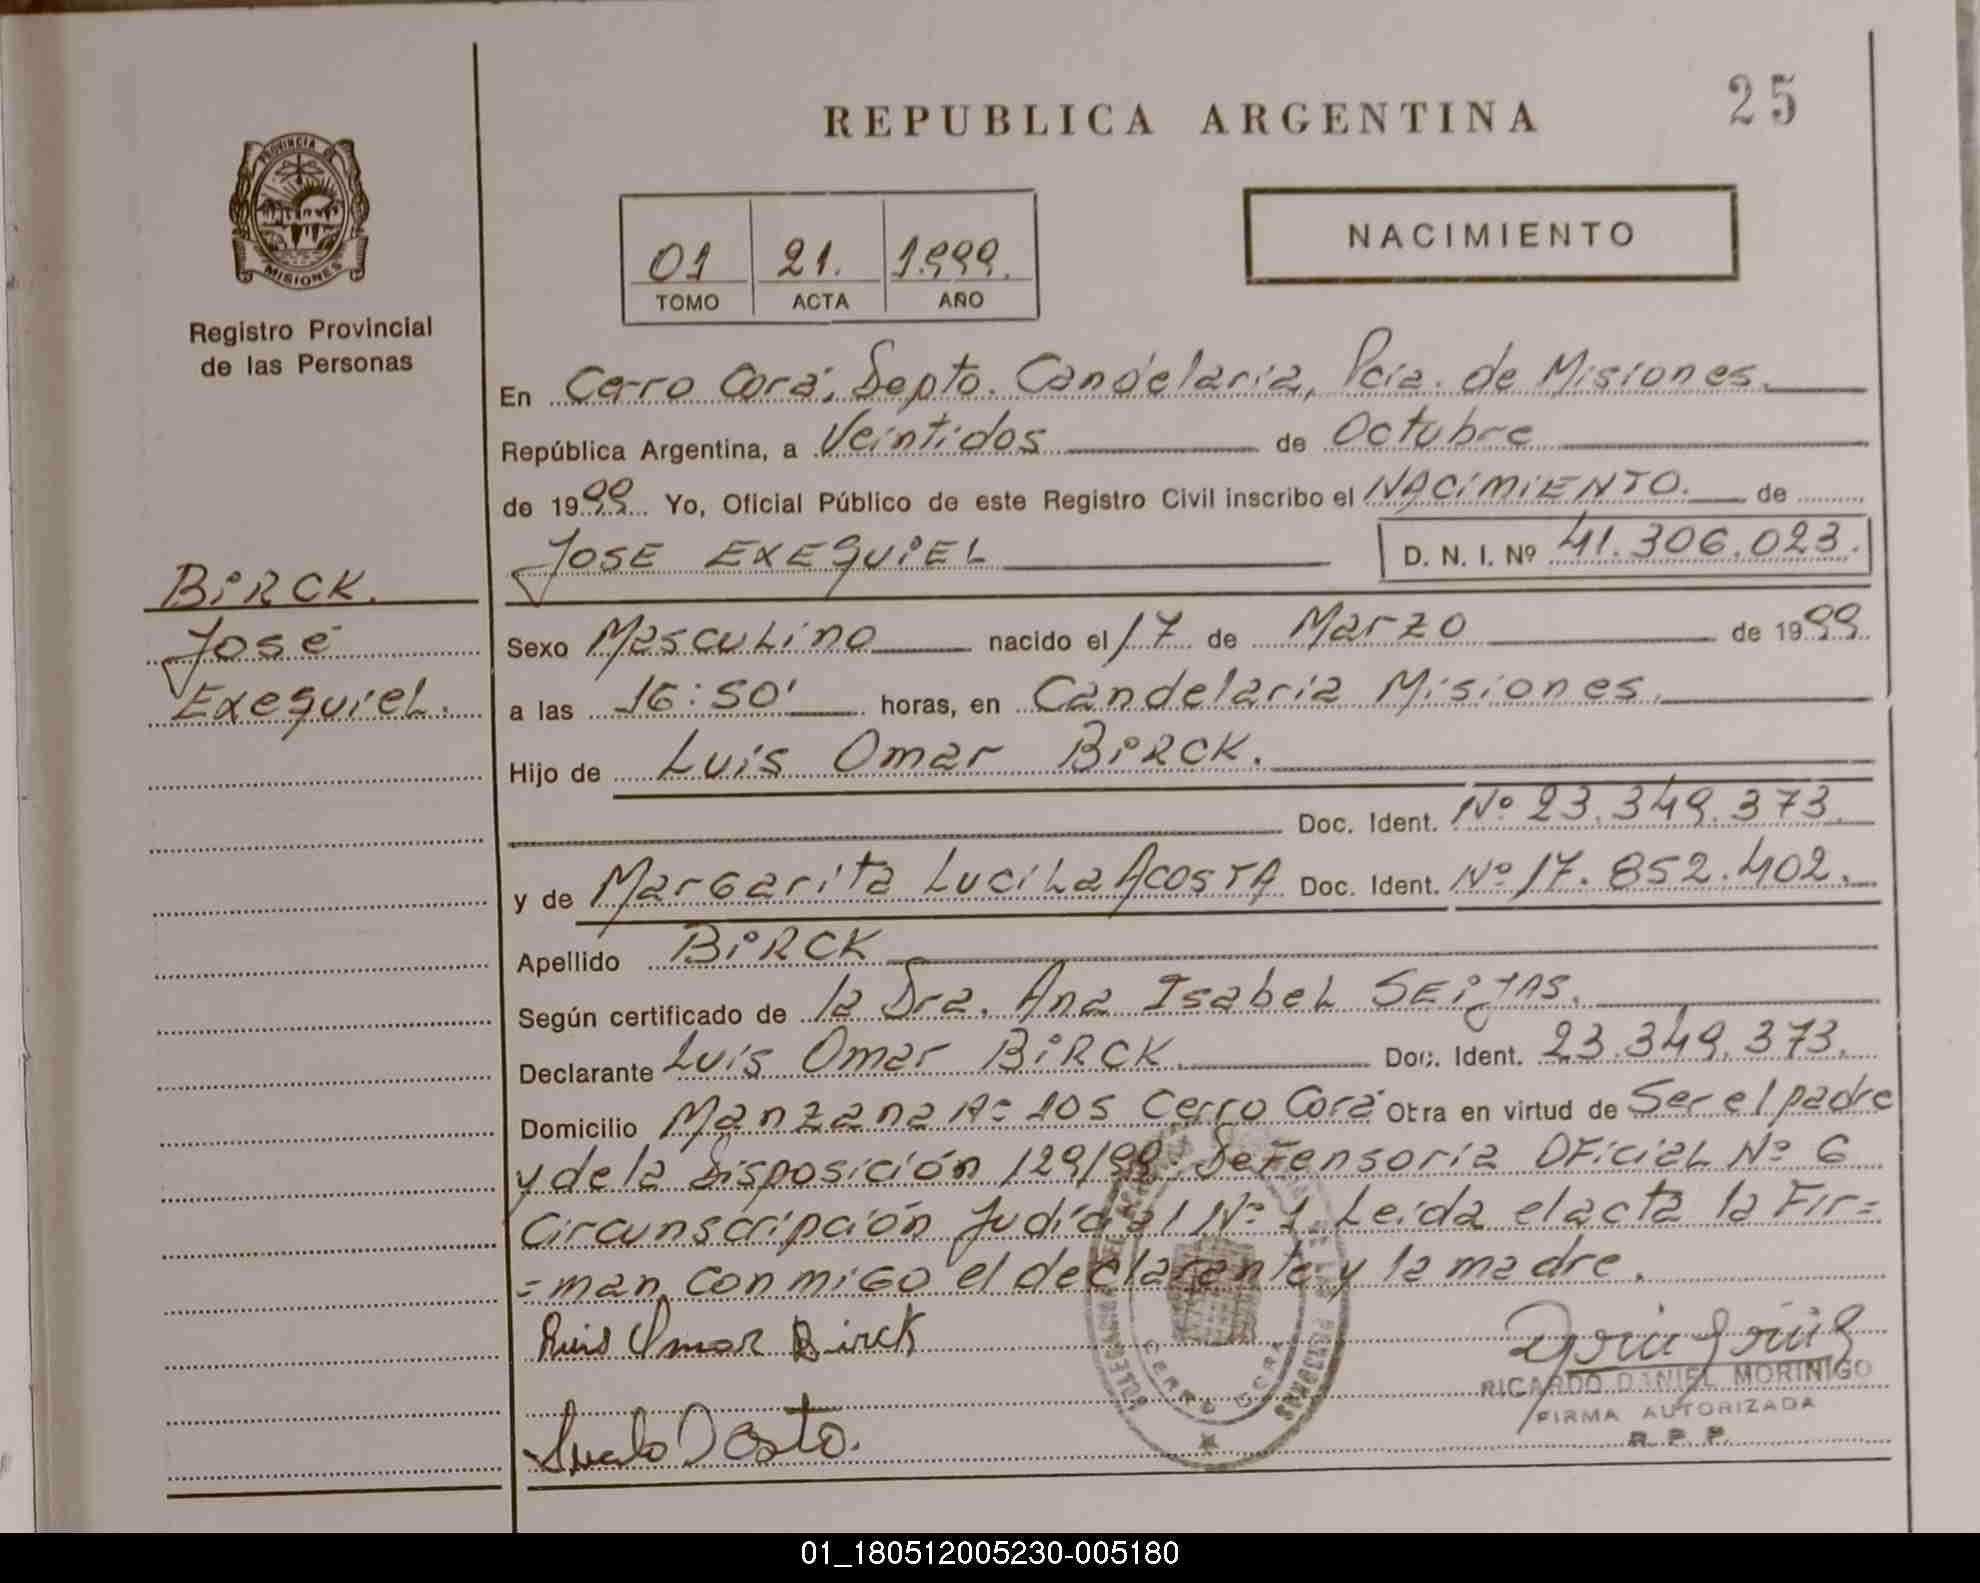 REPUBLICA ARGENTINA
25
PROVINCIA DE
MISIONES
Registro Provincial
de las Personas
01 21. 1.999.
TOMO ACTA AÑO
NACIMIENTO
En Cerro Corá, Depto. Candelaria, Pcia. de Misiones.
República Argentina, a Veintidos de Octubre
de 1999. Yo, Oficial Público de este Registro Civil inscribo el NACIMIENTO. de
JOSE EXEQUIEL D. N. I. Nº 41.306.023.
BIRCK.
José
Exequiel.
Sexo Masculino nacido el 17 de Marzo de 1999
a las 16:50' horas, en Candelaria Misiones.
Hijo de Luis Omar BIRCK.
Doc. Ident. Nº 23.349.373.
y de Margarita Lucila ACOSTA Doc. Ident. Nº 17.852.402.
Apellido BIRCK
Según certificado de la Dra. Ana Isabel SEIJAS.
Declarante Luis Omar BIRCK. Doc. Ident. 23.349.373.
Domicilio Manzana Nº 105 Cerro Corá Obra en virtud de Ser el padre
y de la Disposición 129/99. Defensoria Oficial Nº 6
Circunscripción Judicial Nº 1. Leida el acta la Fir=
=man conmigo el declarante y la madre.
Luis Omar Birck
RICARDO DANIEL MORINIGO
FIRMA AUTORIZADA
R.P.P.
CERRO CORA
01_180512005230-005180